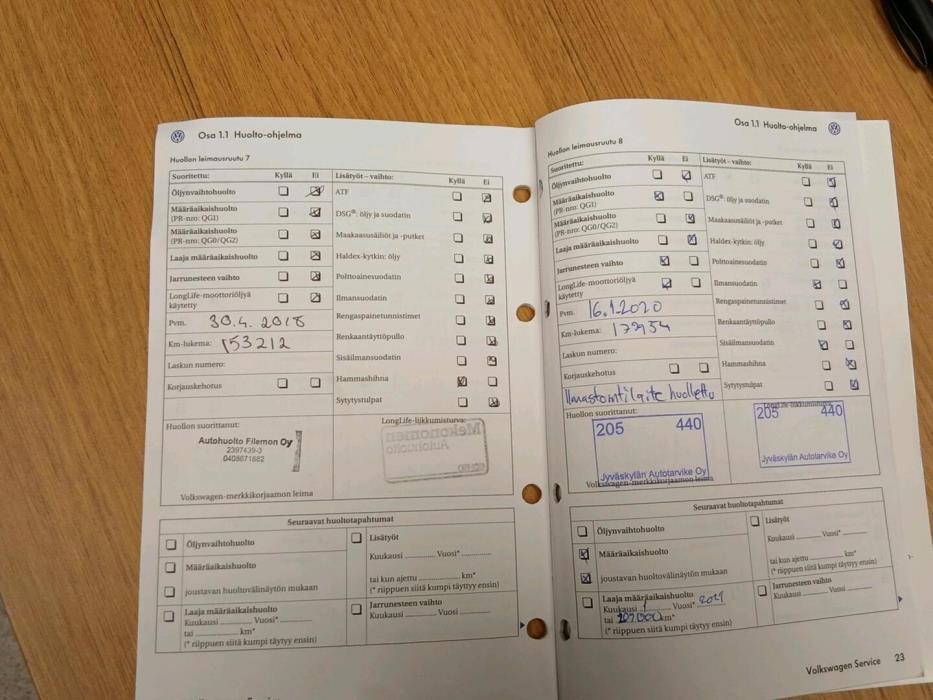 Osa 1.1 Huolto-ohjelma
Huollon leimausruutu 7
Suoritettu: Kyllä Ei
Öljynvaihtohuolto
Määräaikaishuolto
(PR-nro: QG1)
Määräaikaishuolto
(PR-nro: QG0/QG2)
Laaja määräaikaishuolto
Jarrunesteen vaihto
LongLife-moottoriöljyä
käytetty
Pvm. 30.4. 2018
Km-lukema: 153212
Laskun numero:
Korjauskehotus
Lisätyöt – vaihto: Kyllä Ei
ATF
DSG®: öljy ja suodatin
Maakaasusäiliöt ja -putket
Haldex-kytkin: öljy
Polttoainesuodatin
Ilmansuodatin
Rengaspainetunnistimet
Renkaantäyttöpullo
Sisäilmansuodatin
Hammashihna
Sytytystulpat
Huollon suorittanut:
Autohuolto Filemon Oy
2397439-3
0408671682
Volkswagen-merkkikorjaamon leima
LongLife-liikkumisturva:
Mekonomen
Autohuolto
Seuraavat huoltotapahtumat
Öljynvaihtohuolto
Määräaikaishuolto
joustavan huoltovälinäytön mukaan
Laaja määräaikaishuolto
Kuukausi Vuosi*
tai km*
(* riippuen siitä kumpi täyttyy ensin)
Lisätyöt
Kuukausi Vuosi*
tai kun ajettu km*
(* riippuen siitä kumpi täyttyy ensin)
Jarrunesteen vaihto
Kuukausi Vuosi
Osa 1.1 Huolto-ohjelma
Huollon leimausruutu 8
Suoritettu: Kyllä Ei
Öljynvaihtohuolto
Määräaikaishuolto
(PR-nro: QG1)
Määräaikaishuolto
(PR-nro: QG0/QG2)
Laaja määräaikaishuolto
Jarrunesteen vaihto
LongLife-moottoriöljyä
käytetty
Pvm. 16.1.2020
Km-lukema: 172954
Laskun numero:
Korjauskehotus
Ilmastointilaite huollettu
Lisätyöt – vaihto: Kyllä Ei
ATF
DSG®: öljy ja suodatin
Maakaasusäiliöt ja -putket
Haldex-kytkin: öljy
Polttoainesuodatin
Ilmansuodatin
Rengaspainetunnistimet
Renkaantäyttöpullo
Sisäilmansuodatin
Hammashihna
Sytytystulpat
Huollon suorittanut:
205 440
Jyväskylän Autotarvike Oy
Volkswagen-merkkikorjaamon leima
LongLife-liikkumisturva:
205 440
Jyväskylän Autotarvike Oy
Seuraavat huoltotapahtumat
Öljynvaihtohuolto
Määräaikaishuolto
joustavan huoltovälinäytön mukaan
Laaja määräaikaishuolto
Kuukausi 1 Vuosi* 2021
tai km*
(* riippuen siitä kumpi täyttyy ensin)
Lisätyöt
Kuukausi Vuosi*
tai kun ajettu km*
(* riippuen siitä kumpi täyttyy ensin)
Jarrunesteen vaihto
Kuukausi Vuosi
Volkswagen Service 23